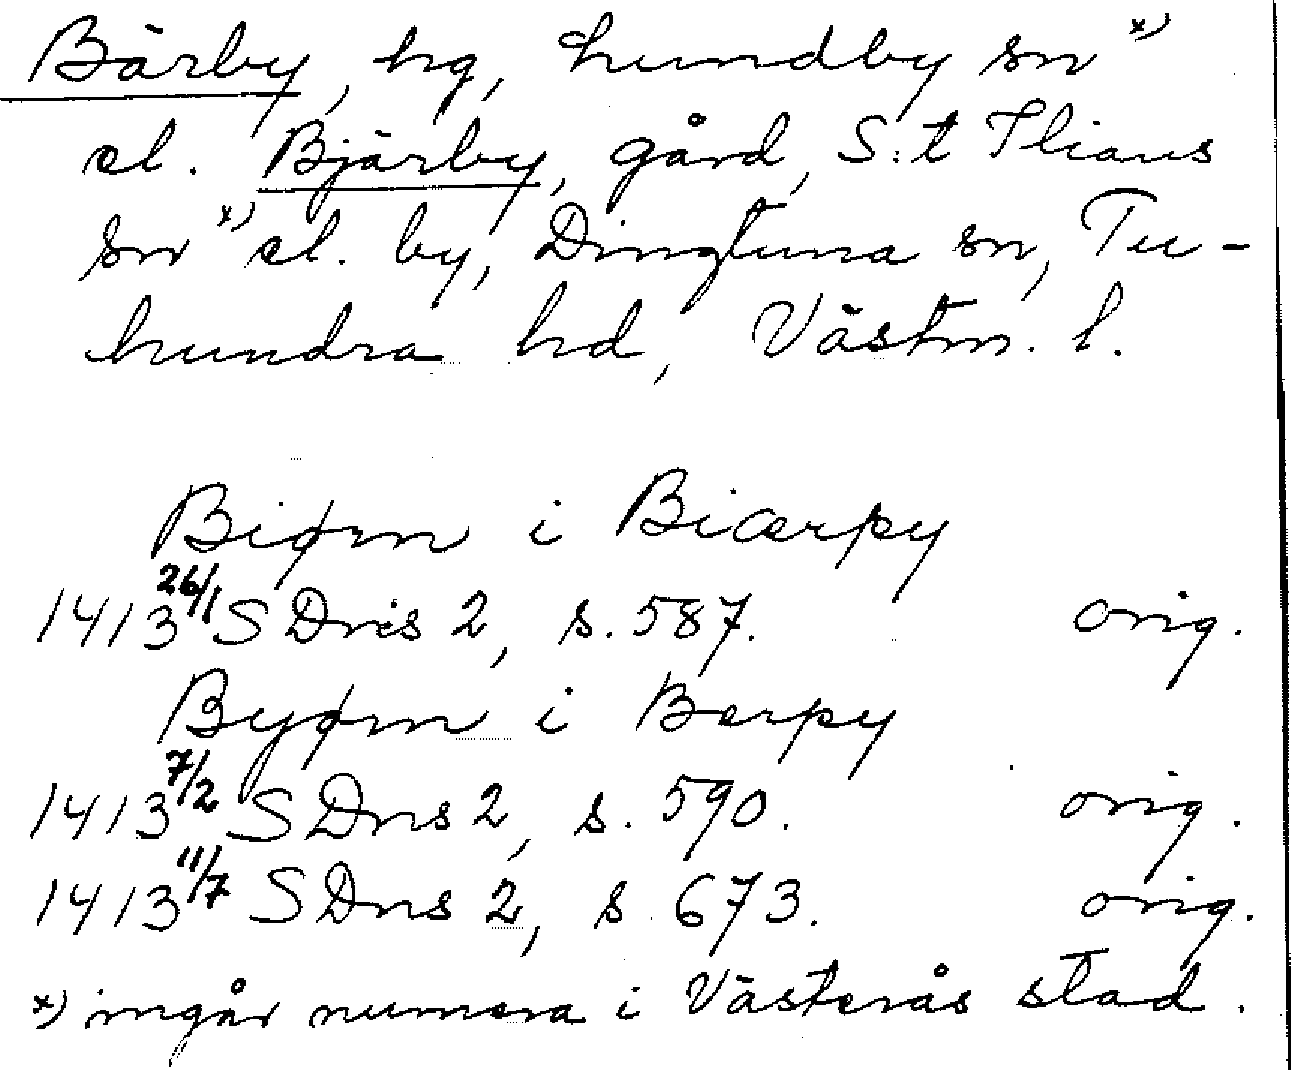 Bärby, hg, Lundby sn x)
el. Bjärby, gård, S:t Ilians
sn x) el. by, Dingtuna sn, Tu-
hundra hd, Västm. l.
Biørn i Biærpy
1413 26/1 SDns 2, s. 587. orig.
Byørn i Berpy
1413 7/2 SDns 2, s. 590. orig.
1413 11/7 SDns 2, s. 673. orig.
x) ingår numera i Västerås stad.